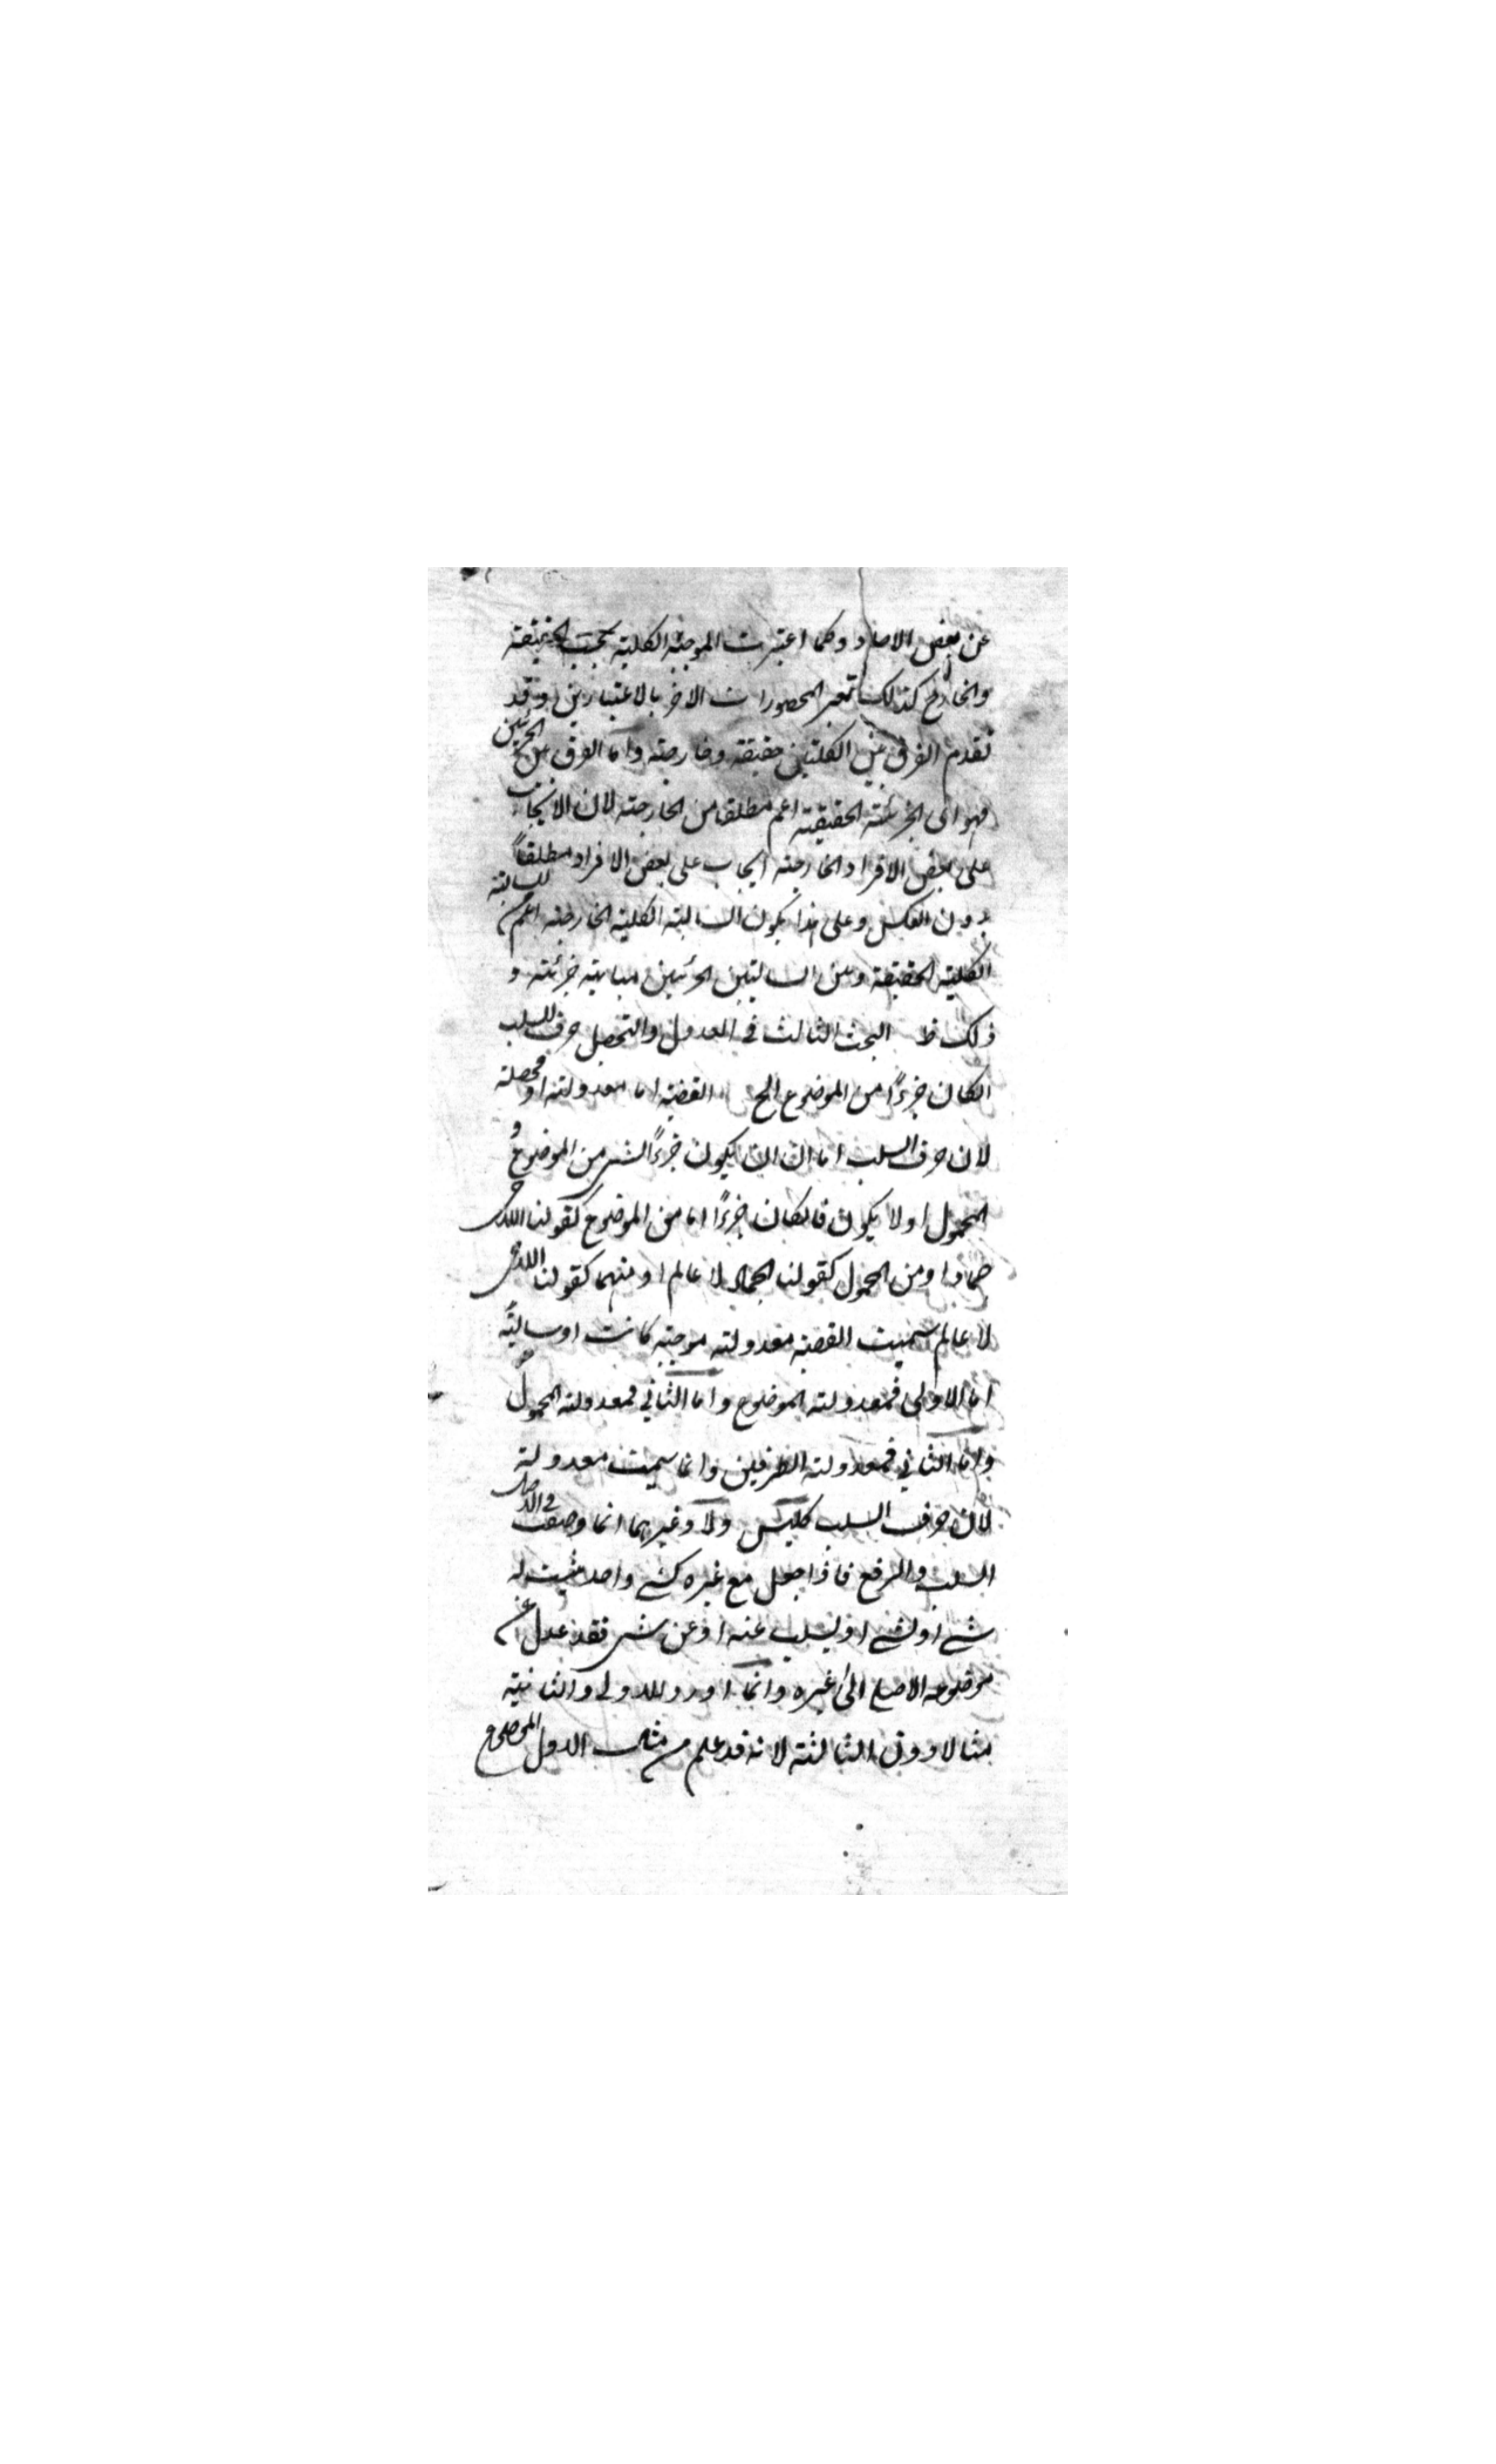 عن بعض الاحاد وكما اعتبرت الموجبة الكلية بحسب الحقيقة
والخارج كذلك تعتبر المحصورات الاخر بالاعتبارين وقد
تقدم الفرق بين الكليتين حقيقة وخارجة واما الفرق بين الجزئيتين
فهو ان الجزئية الحقيقية اعم مطلقا من الخارجة لان الايجاب
على بعض الافراد الخارجة ايجاب على بعض الافراد مطلقاً
بدون العكس وعلى هذا يكون السالبة الكلية الخارجة اعم من السالبة
الكلية الحقيقة وبين السالبتين الجزئيتين مباينة جزئية و
ذلك ظ البحث الثالث في العدول والتحصل حرف السلب
الكان جزءًا من الموضوع الخ القضية اما معدولة او محصلة
لان حرف السلب اما ان يكون جزءًا لشئ من الموضوع و
المحمول او لا يكون فالكان جزءًا اما من الموضوع كقولنا اللاحى
جماد او من المحمول كقولنا الجماد لا عالم او منهما كقولنا اللاحى
لا عالم سميت القضية معدولة موجبة كانت او سالبة
اما الاولى فمعدولة الموضوع واما الثاني فمعدولة المحمول
واما الثاني فمعدولة الطرفين وانما سميت معدولة
لان حرف السلب كليس ولا وغيرهما انما وضعت في الاصل
السلب والرفع فاذا جعل مع غيره كشئ واحد يثبت له
شئ او لشئ او يسلب عنه او عن شئ فقد عدل عن
موضوعه الاصلي الى غيره وانما اورد للاولى والثانية
مثالا دون الثالثة لانه قد علم من مثال الاول الموضوع